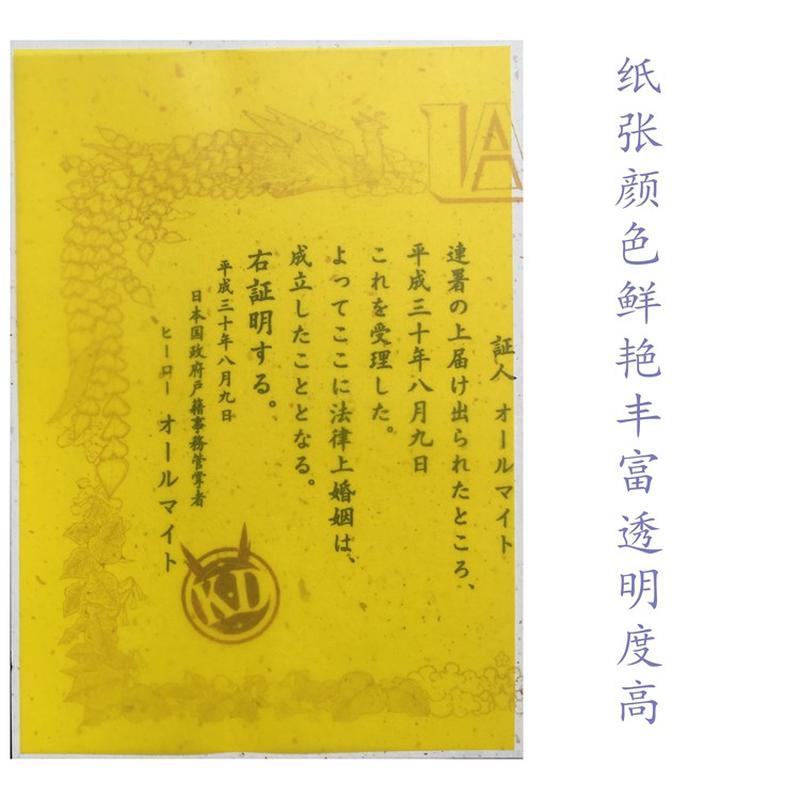 纸张颜色鲜艳丰富透明度高
UA
証人 オールマイト
連署の上届け出られたところ、
平成三十年八月九日
これを受理した。
よってここに法律上婚姻は、
成立したこととなる。
右証明する。
平成三十年八月九日
日本国政府戸籍事務管掌者
ヒーロー オールマイト
KD